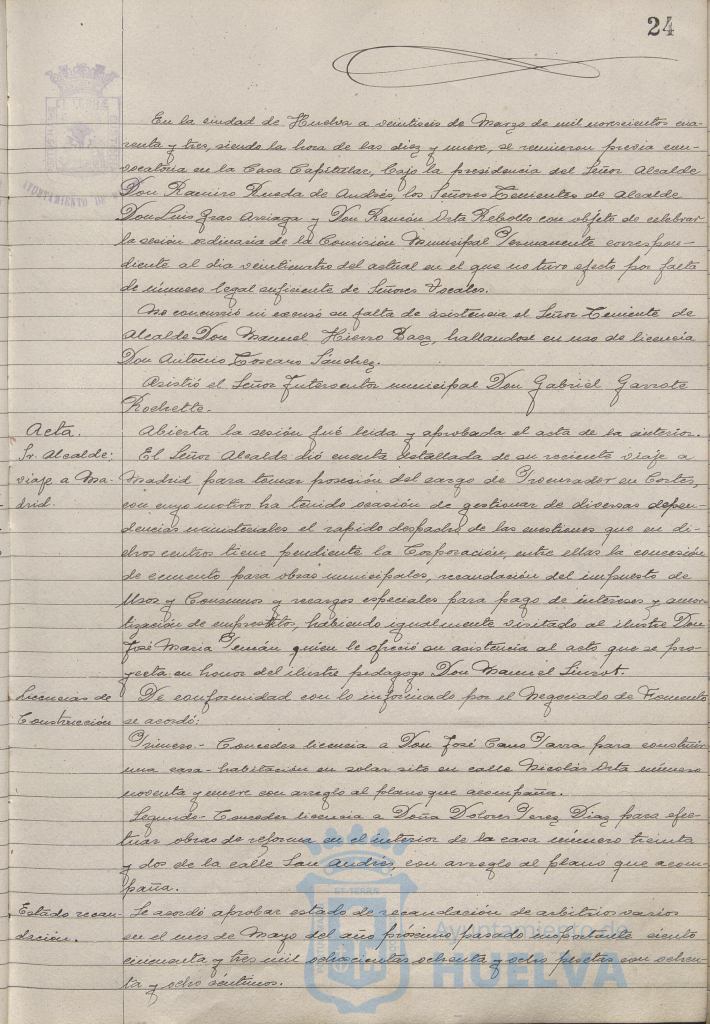 24
En la ciudad de Huelva a veintiseis de Marzo de mil novescientos cua-
renta y tres, siendo la hora de las diez y nueve, se reunieron previa con-
vocatoria en la Casa Capitular, bajo la presidencia del Señor Alcalde
Don Ramiro Rueda de Andrés, los Señores Tenientes de Alcalde
Don Luis Gras Arriaga y Don Ramón Orta Rebollo con objeto de celebrar
la sesión ordinaria de la Comisión Municipal Permanente correspon-
diente al dia veinticuatro del actual en el que no tuvo efecto por falta
de número legal suficiente de Señores Vocales.
No concurrió ni excusó su falta de asistencia el Señor Teniente de
Alcalde Don Manuel Hierro Baez, hallandose en uso de licencia
Don Antonio Toscano Sánchez.
Asistió el Señor Interventor municipal Don Gabriel Garrote
Rochette.
Acta.
Abierta la sesión fué leida y aprobada el acta de la anterior.
Sr. Alcalde:
El Señor Alcalde dió cuenta detallada de su reciente viaje a
viaje a Ma-
Madrid para tomar posesión del cargo de Procurador en Cortes,
drid.
con cuyo motivo ha tenido ocasión de gestionar de diversas depen-
dencias ministeriales el rapido despacho de las cuestiones que en di-
chos centros tiene pendiente la Corporación, entre ellas la concesión
de cemento para obras municipales, recaudación del impuesto de
Usos y Consumos y recargos especiales para pago de intereses y amor-
tización de empréstitos, habiendo igualmente visitado al ilustre Don
José Maria Pemán quien le ofreció su asistencia al acto que se pro-
yecta en honor del ilustre pedagogo Don Manuel Siurot.
Licencias de
De conformidad con lo informado por el Negociado de Fomento
Construcción
se acordó:
Primero.- Conceder licencia a Don José Cano Parra para construir
una casa-habitación en solar sito en calle Nicolás Orta número
noventa y nueve con arreglo al plano que acompaña.
Segundo.- Conceder licencia a Doña Dolores Perez Diaz para efec-
tuar obras de reforma en el interior de la casa número treinta
y dos de la calle San Andrés, con arreglo al plano que acom-
paña.
Estado recau-
Se acordó aprobar estado de recaudación de arbitrios varios
dación.
en el mes de Mayo del año próximo pasado importante ciento
cincuenta y tres mil ochocientas ochenta y ocho pesetas con ochen-
ta y ocho céntimos.
Ayuntamiento de
HUELVA